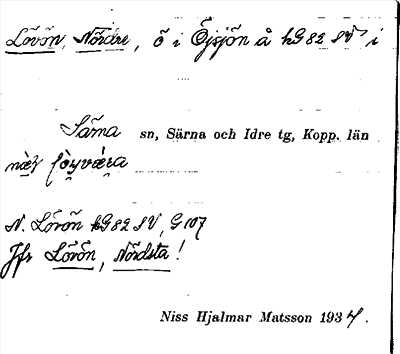 Lövön, Nördre, ö i Öjsjön å kG 82 SV i
Särna sn, Särna och Idre tg, Kopp. län
nœ̀ʒ fòyvæ̀ra
N. Lövön kG 82 SV, G 107
Jfr Lövön, Nördsta!
Niss Hjalmar Matsson 1937.